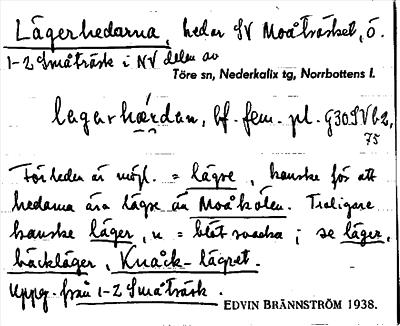 Lägerhedarna, hedar SV Moåträsket, ö.
1-2 Småträsk i NV delen av
Töre sn, Nederkalix tg, Norrbottens l.
lagarhærdan, bf. fem. pl. G30SVb2,
75
Förleden är möjl. = lägre, kanske för att
hedarna äro lägre än Moåkölen. Troligare
kanske läger, n = blöt svacka; se läger,
bäckläger, Knååk-lägret.
Uppg. från 1-2 Småträsk.
EDVIN BRÄNNSTRÖM 1938.